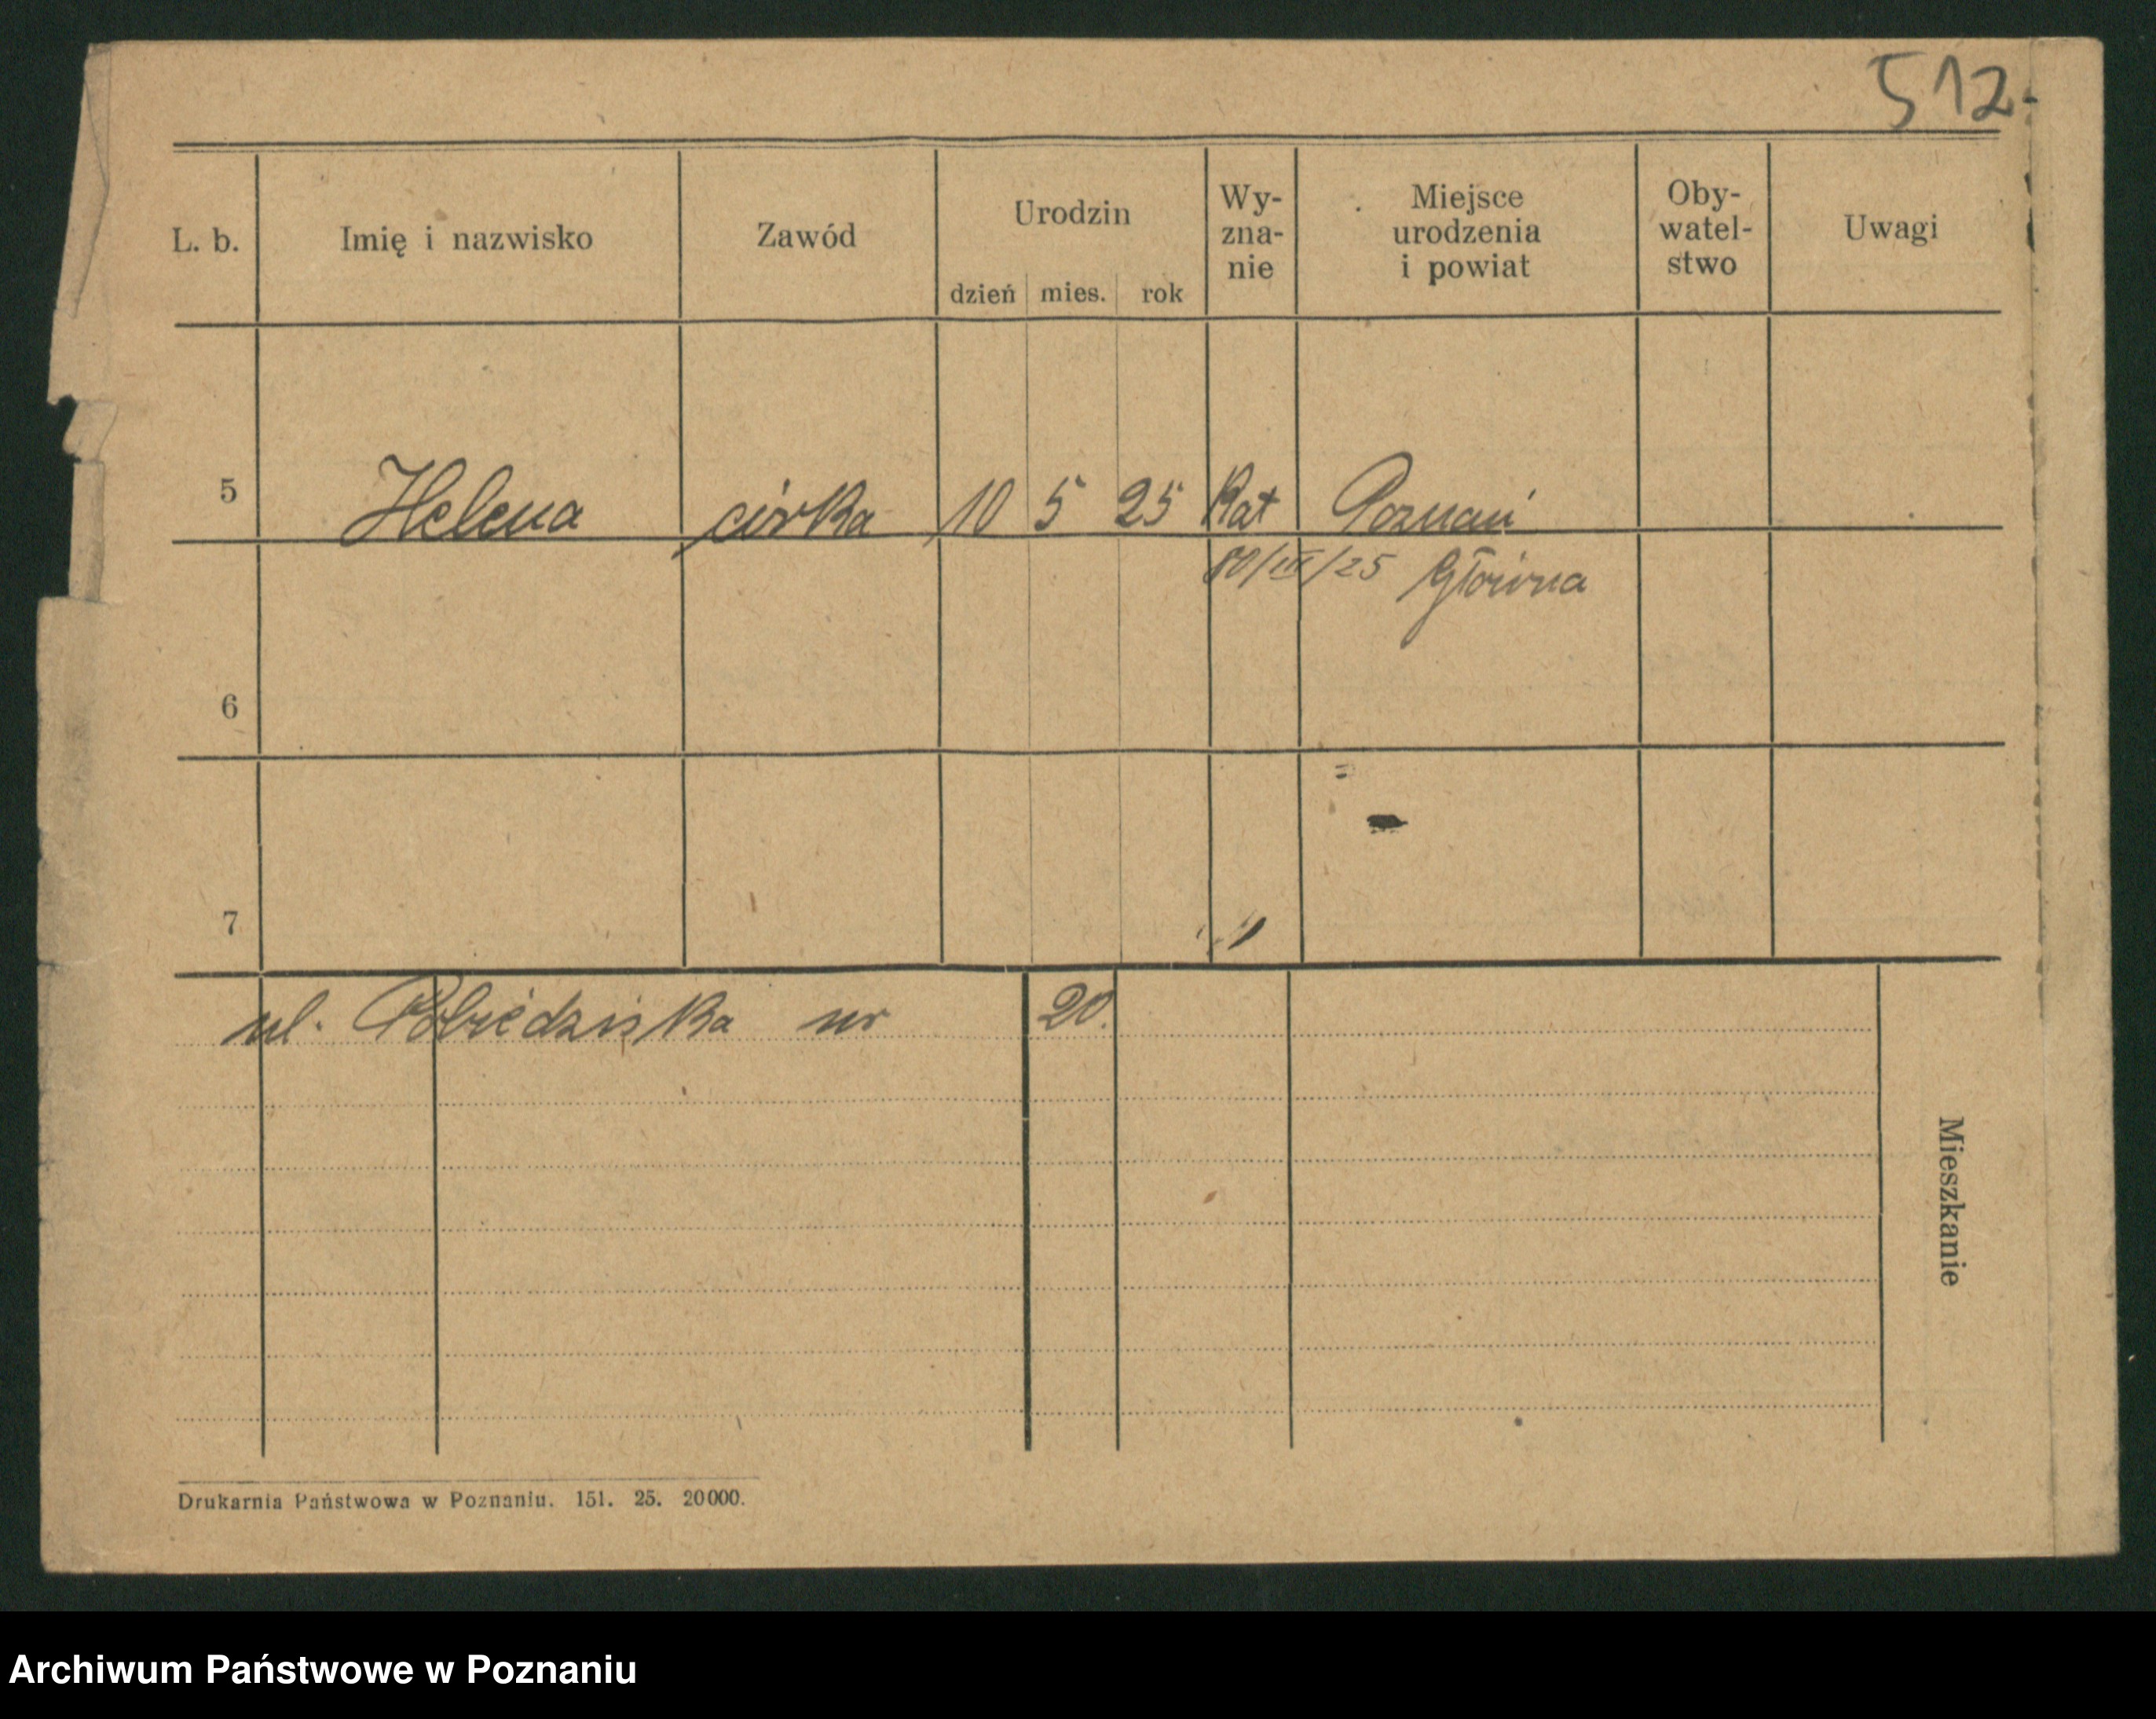 512
L. b. Imię i nazwisko Zawód Urodzin dzień mies. rok Wy-zna-nie Miejsce urodzenia i powiat Oby-watel-stwo Uwagi
5 Helena córka 10 5 25 Kat Poznań
10/III/25 Główna
6
7
ul. Pobiedziska nr 20.
Mieszkanie
Drukarnia Państwowa w Poznaniu. 151. 25. 20000.
Archiwum Państwowe w Poznaniu